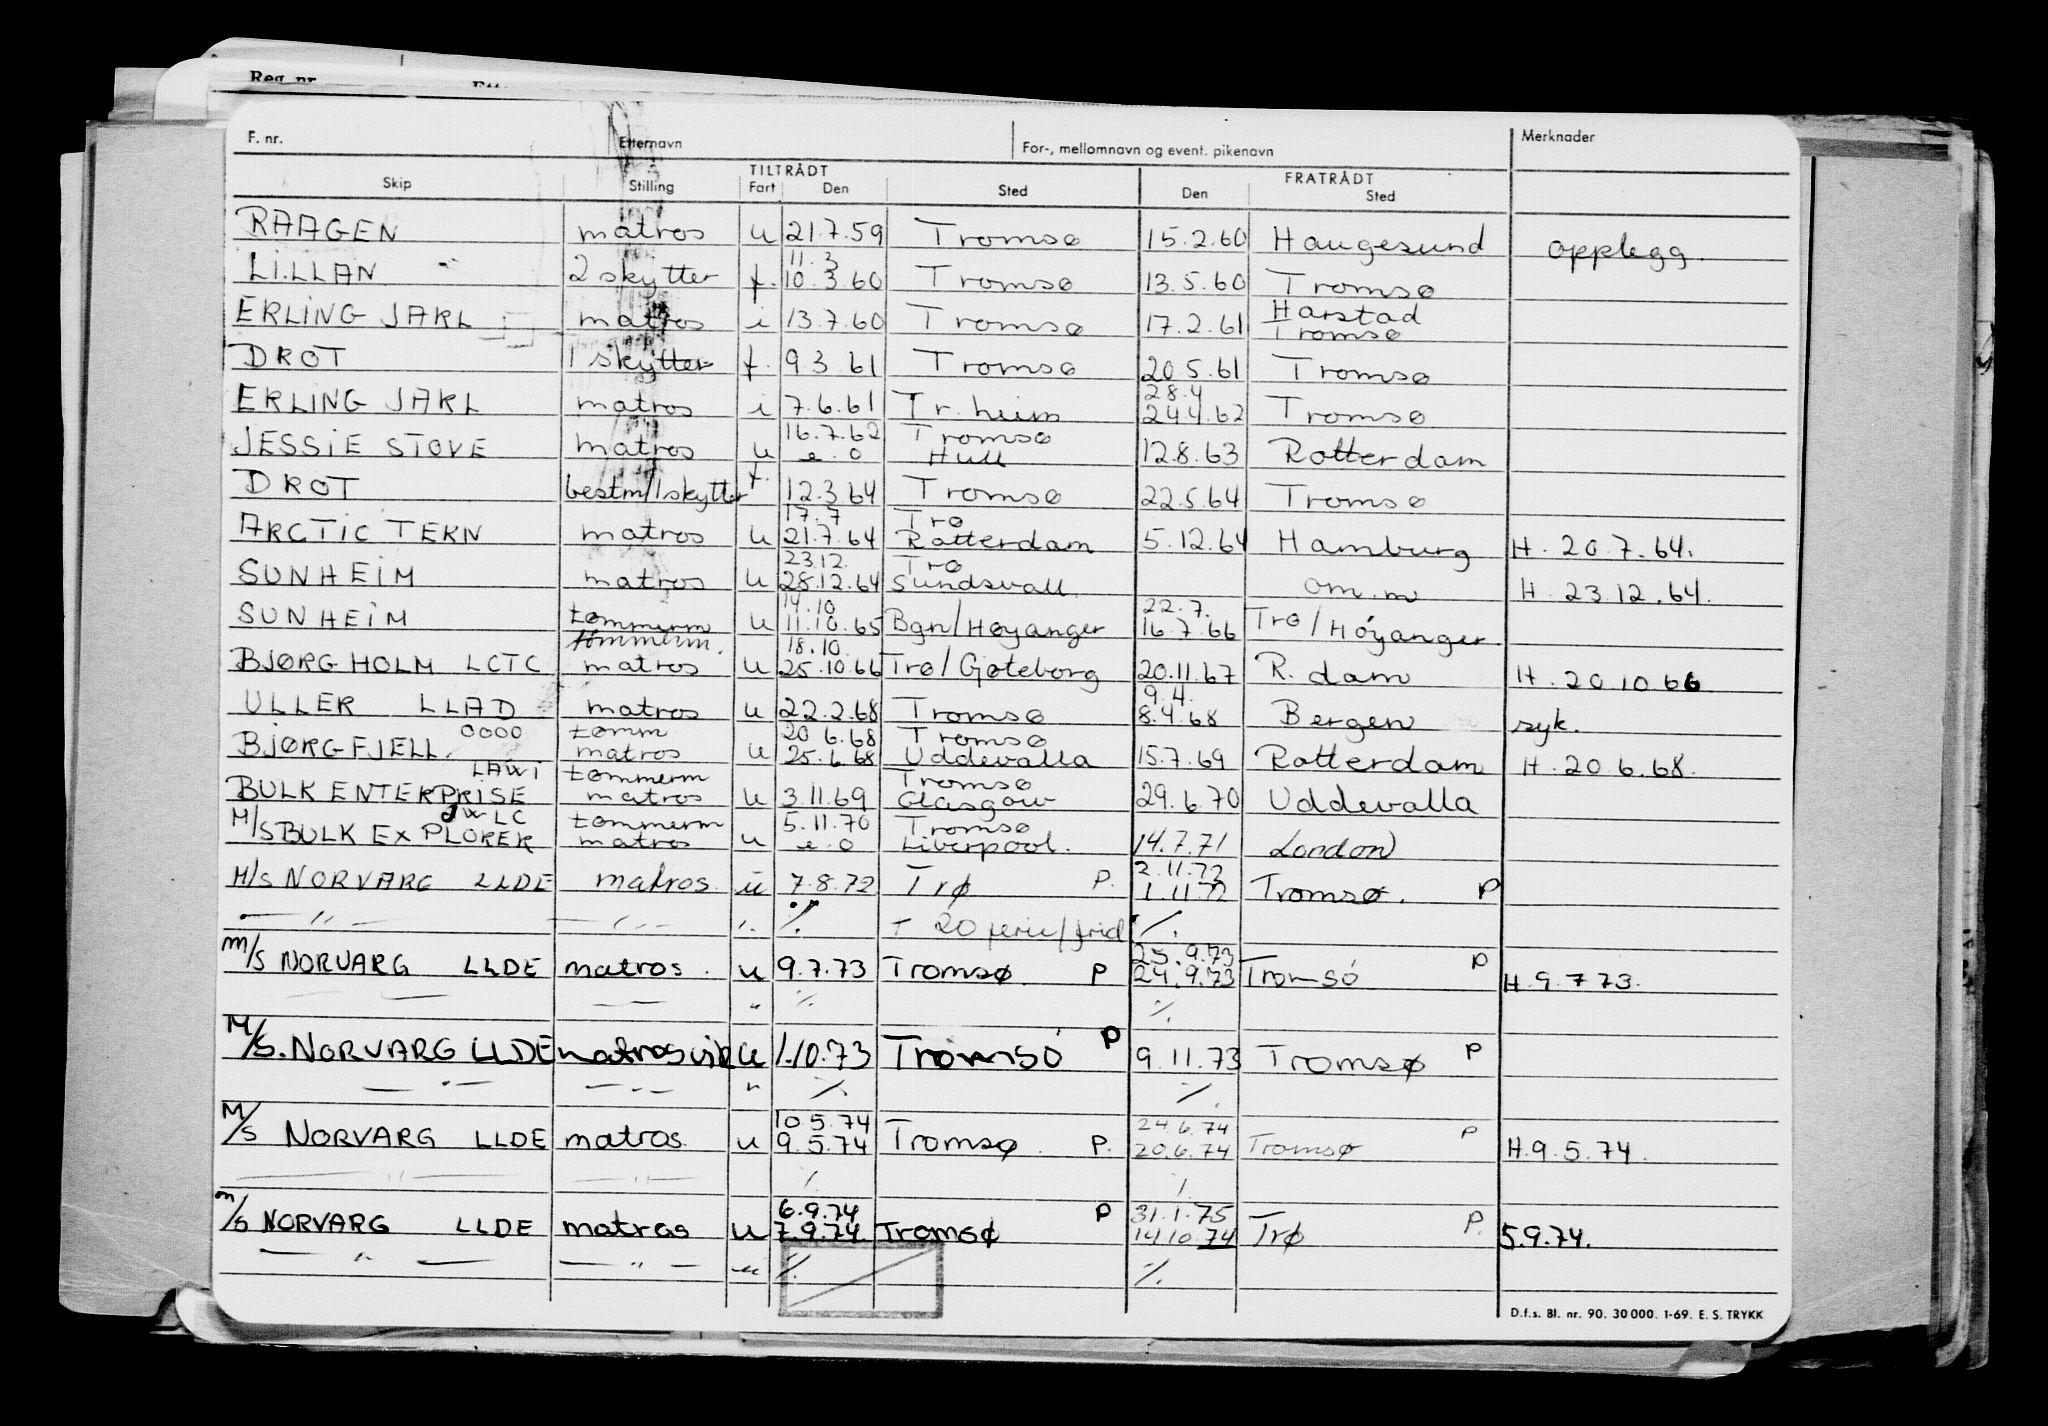 Reg. nr.
F. nr. Etternavn For-, mellomnavn og event. pikenavn Merknader
TILTRÅDT FRATRÅDT
Skip Stilling Fart Den Sted Den Sted
RAAGEN matros u 21.7.59 Tromsø 15.2.60 Haugesund opplegg.
11.3
LILLAN 2 skytter f. 10.3.60 Tromsø 13.5.60 Tromsø
Harstad
ERLING JARL matros i 13.7.60 Tromsø 17.2.61 Tromsø
DROT 1 skytter f. 9.3.61 Tromsø 20.5.61 Tromsø
28.4
ERLING JARL matros i 7.6.61 Tr.heim 24.4.62 Tromsø
16.7.62 Tromsø
JESSIE STOVE matros u e.o Hull 12.8.63 Rotterdam
DROT bestm/1skytter f. 12.3.64 Tromsø 22.5.64 Tromsø
17.7 Trø
ARCTIC TERN matros u 21.7.64 Rotterdam 5.12.64 Hamburg H. 20.7.64.
23.12. Trø
SUNHEIM matros u 28.12.64 Sundsvall. om.m H. 23.12.64.
14.10 22.7.
SUNHEIM tømmerm u 11.10.65 Bgn/Høyanger 16.7.66 Trø/Høyanger
tømmerm. 18.10.
BJØRGHOLM LCTC matros u 25.10.66 Trø/Gøteborg 20.11.67 R.dam H. 20 10 66
9.4.
ULLER LLAD matros u 22.2.68 Tromsø 8.4.68 Bergen syk.
OOOO tømm 20 6.68 Tromsø
BJØRGFJELL. matros u 25.6.68 Uddevalla 15.7.69 Rotterdam H. 20 6.68.
LAWI tømmerm Tromsø
BULK ENTERPRISE matros u 3.11.69 Glasgow 29.6.70 Uddevalla
JWLC tømmerm 5.11.70 Tromsø
M/S BULK EXPLORER matros u e.o Liverpool. 14.7.71 London
2.11.72
M/S NORVARG LLDE matros. u 7.8.72 Trø P. 1.11.72 Tromsø. P
— " — — " — " ./. + 20 ferie/frid ./.
25.9.73
M/S NORVARG LLDE matros. u 9.7.73 Tromsø. P 24.9.73 Tromsø P H.9.7 73.
— — — — " ./. ./.
M/S. NORVARG LLDE matros vik u 1.10.73 Tromsø P 9.11.73 Tromsø P
— " — — " — " ./. ./.
10.5.74 24.6.74
M/S NORVARG LLDE matros. u 9.5.74 Tromsø. P. 20.6.74 Tromsø P H.9.5.74.
— " — — " — ./. ./.
6.9.74 31.1.75
M/S NORVARG LLDE matros u 7.9.74. Tromsø P 14.10.74 Trø P. 5.9.74.
— " — — " — " ./. ./.
D.f.s. Bl. nr. 90. 30 000. 1-69. E. S. TRYKK